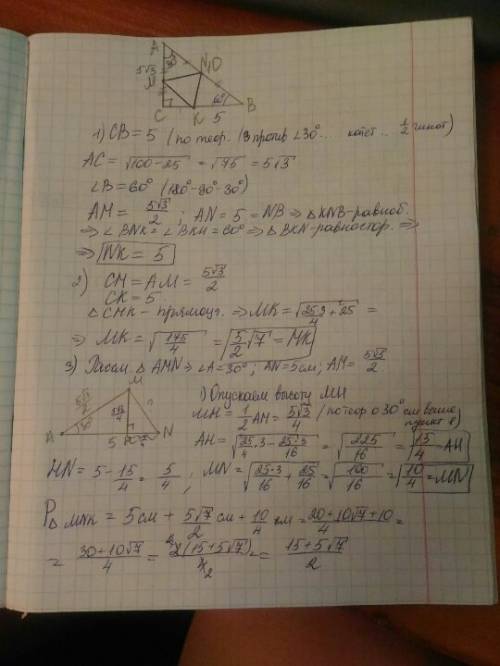 A
30°
5√3
M
N
10
C
K
5
60°
B
1) CB = 5 (по теор. против ∠30°... катет... 1/2 гипот)
AC = √100-25 = √75 = 5√3
∠B = 60° (180°-90°-30°)
AM = 5√3/2 ; AN = 5 = NB ⇒ △KNB-равноб.
⇒ ∠BNK = ∠BKN = 60° ⇒ △BKN-равностор. ⇒
⇒ NK = 5
2) CM = AM = 5√3/2
CK = 5
△CMK - прямоуг. ⇒ MK = √25·3/4 + 25 =
⇒ MK = √175/4 = 5/2 √7 = MK
3) Рассм △AMN ⇒ ∠A = 30° ; AN = 5 см ; AM = 5√3/2
M
5√3/2
5√3/4
A
30°
5
H
N
1) Опускаем высоту MH
MH = 1/2 AM = 5√3/4 (по теор о 30° см выше пункт 1)
AH = √25/4·3 - 25·3/16 = √225/16 = 15/4 = AH
HN = 5 - 15/4 = 5/4 ; MN = √25·3/16 + 25/16 = √100/16 = 10/4 = MN
P△MNK = 5 см + 5√7/2 см + 10/4 см = 20+10√7+10/4 =
= 30+10√7/4 = 2(15+5√7)/4 2 = 15+5√7/2